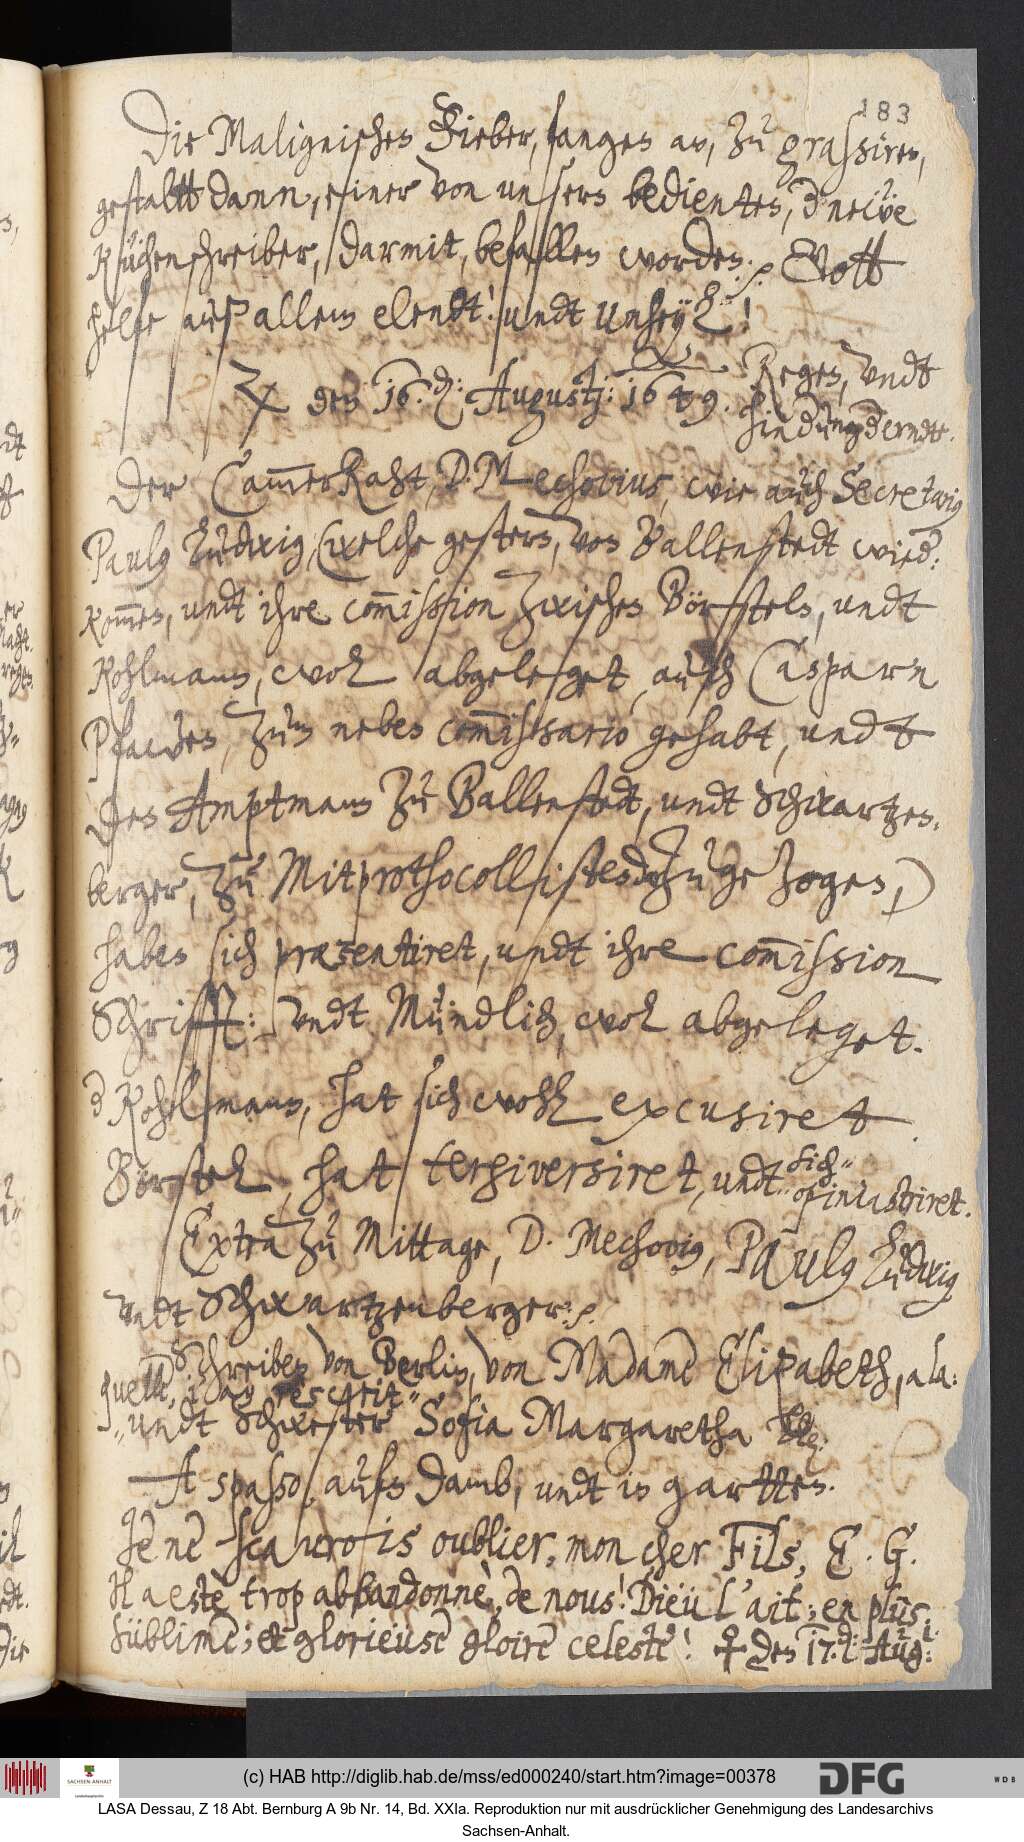 183
Die Malignischen Fieber, fangen an, zu grassiren,
gestaltt dann, einer von unsern bedienten, d neẅe
Küchenschreiber, darmit, befallen worden. Gott
helfe auß allem elendt! undt Unheyl!
den 16. d: Augusti: 1649. Regen, undt
hinderung d erndte.
Der CammerRaht, D. Mechovius, wie auch Secretarius
Paulus Ludwig (welche gestern, von Ballenstedt wied:
kom̄en, undt ihre com̄ission zwischen Börstels, undt
Kohlmann, wol abgeleget, auch Casparn
Pfawen, zum neben com̄issario gehabt, undt
den Amptmann zu Ballenstedt, undt Schwartzen-
berger, zu Mitprothocollisten darzu gezogen,)
haben sich præsentiret, undt ihre com̄ission
Schrifft: undt Mündlich, wol abgeleget.
d Kohlmann, hat sich wohl excusiret.
Börstel, hat tergiversiret, undt sich
opiniastriret.
Extra zu Mittage, D. Mechovius, Paulus Ludwig
undt Schwartzenberger.
Schreiben von Berlin, von Madame Elisabeth, ala:
quelle, j'ay rescrit
undt Schwester Sofia Margaretha
A spasso, aufn Damb, undt in gartten.
Je ne sçaurois oublier, mon cher Fils, E. G.
Il a estè trop abbandonnè, de nous! Dieu l'ait; en plus
sublime; et glorieuse gloire celeste! ♀ den 17. d: Aug:
(c) HAB http://diglib.hab.de/mss/ed000240/start.htm?image=00378
SACHSEN-ANHALT
DFG
WDB
LASA Dessau, Z 18 Abt. Bernburg A 9b Nr. 14, Bd. XXIa. Reproduktion nur mit ausdrücklicher Genehmigung des Landesarchivs
Sachsen-Anhalt.